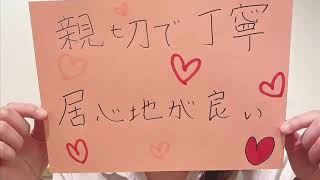 親切で丁寧
居心地が良い